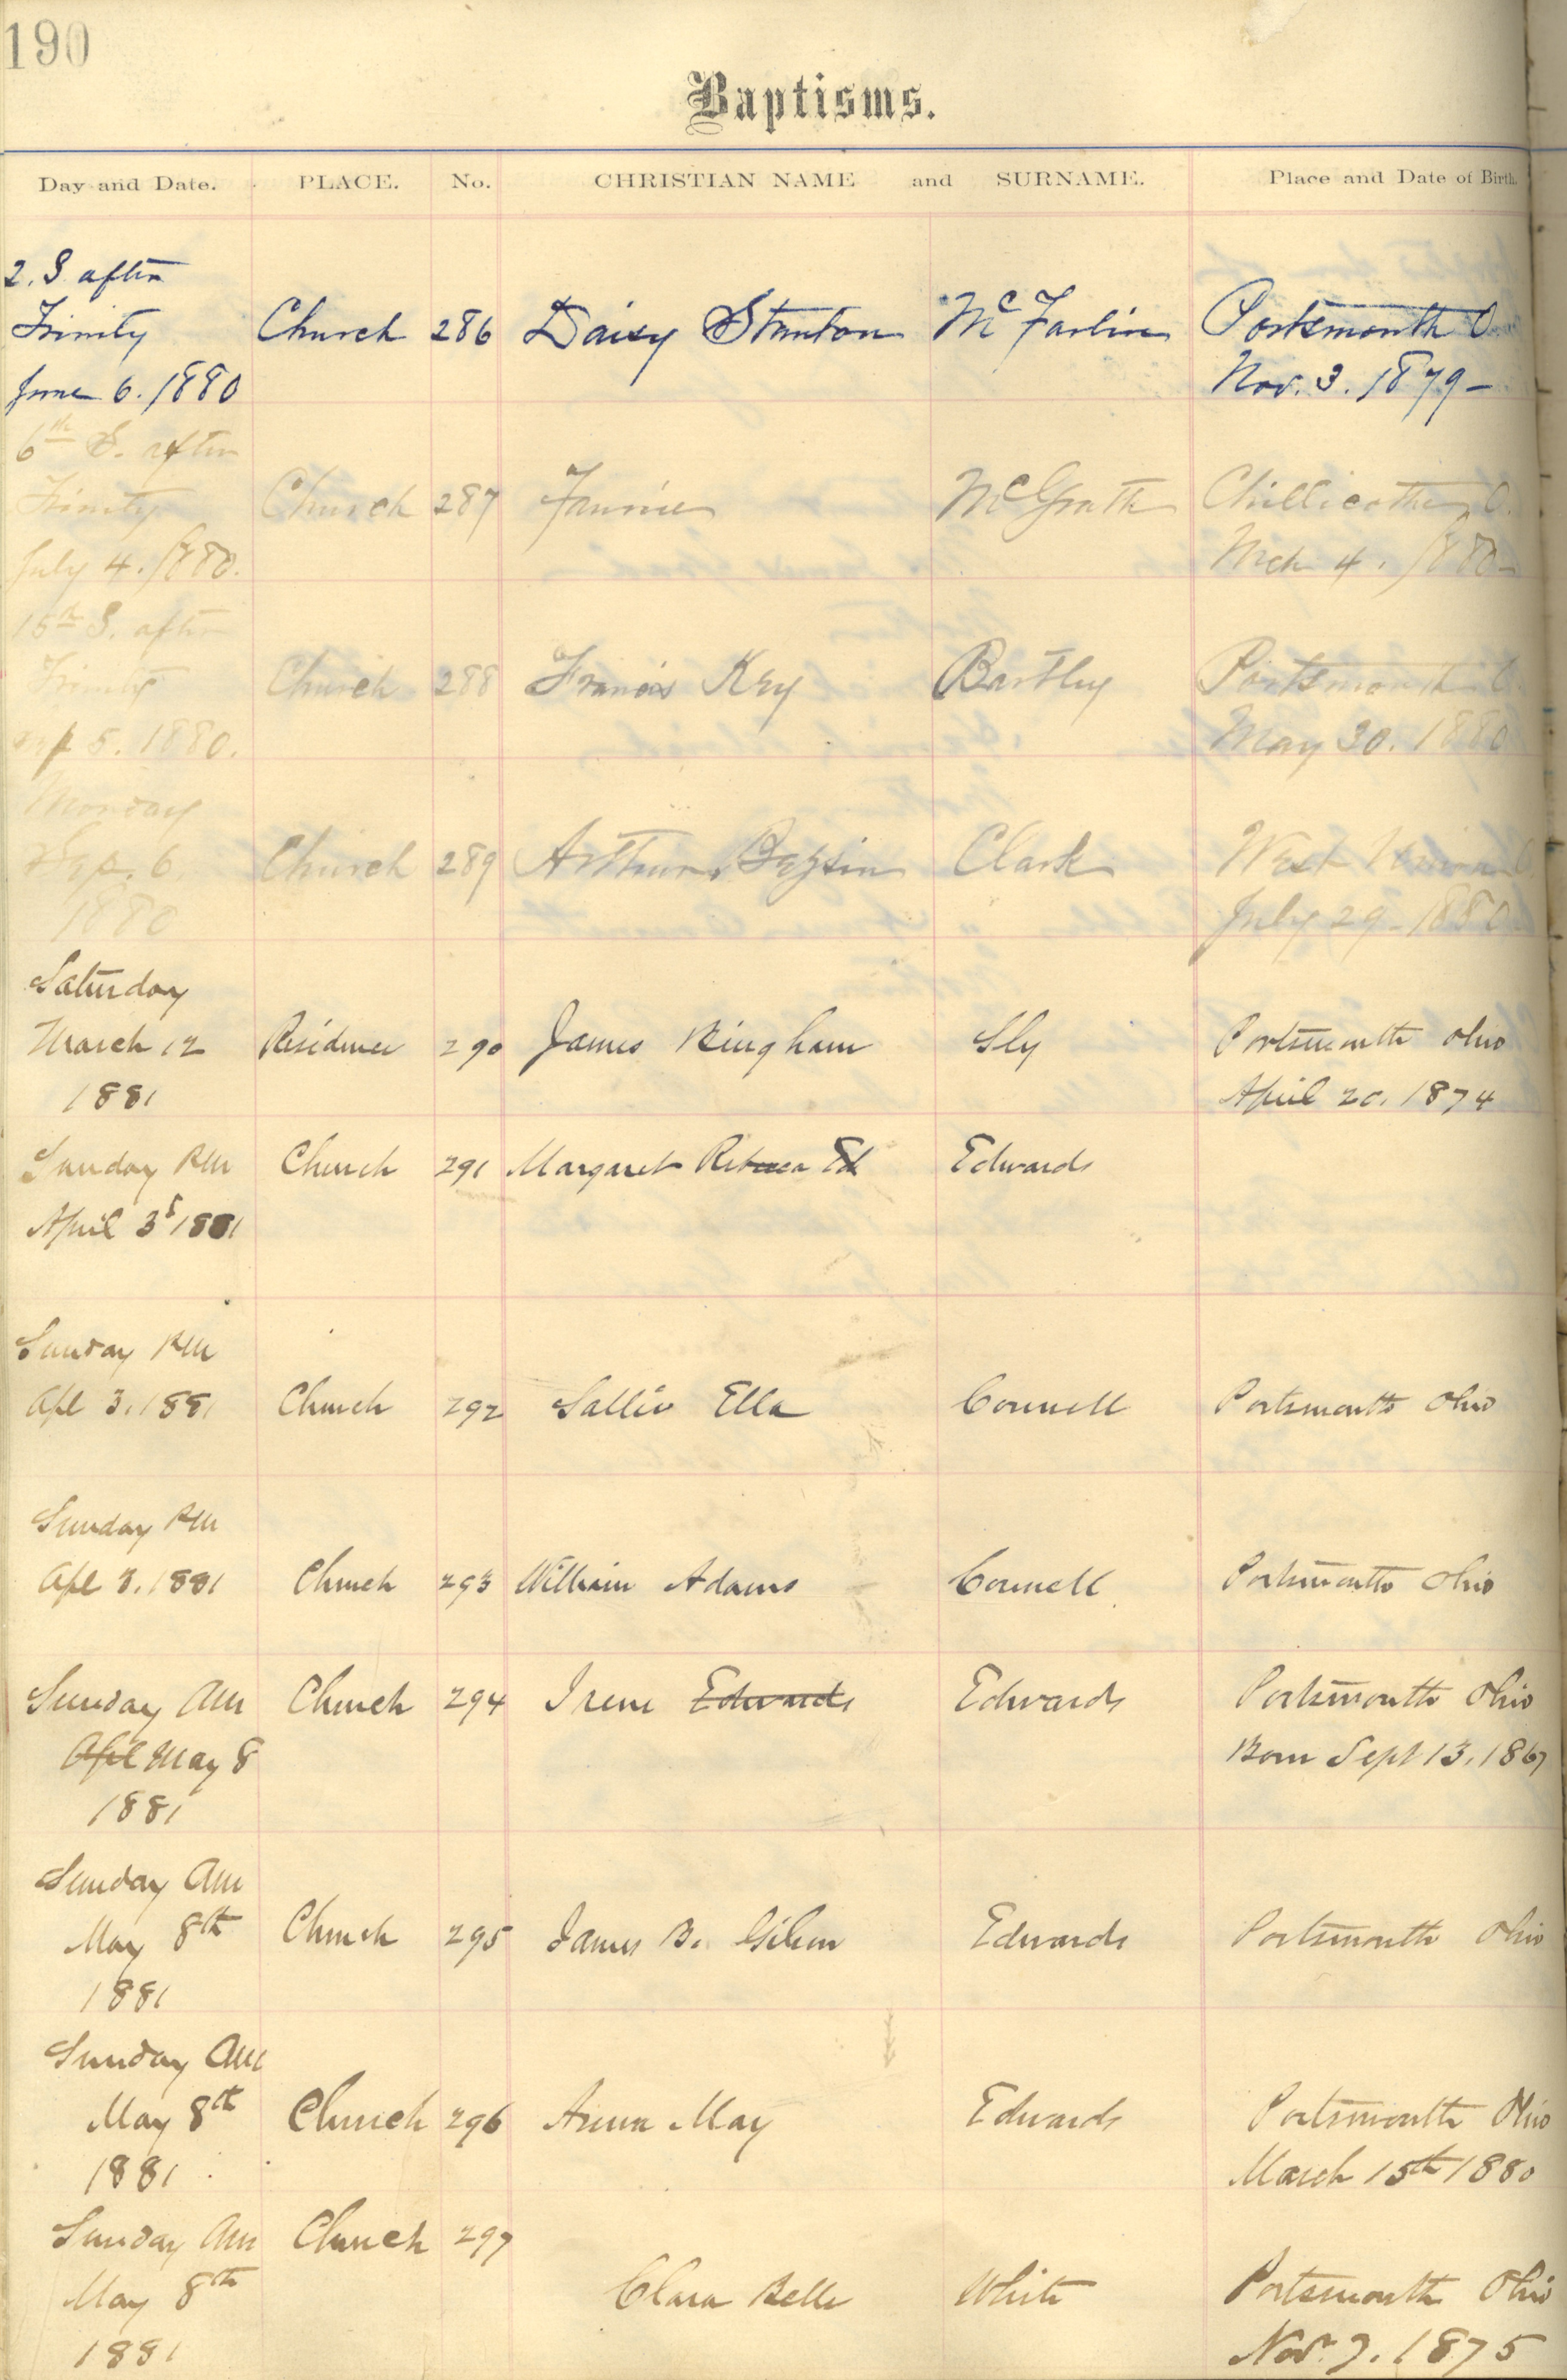 190
Baptisms.
Day and Date. PLACE. No. CHRISTIAN NAME and SURNAME. Place and Date of Birth.
2. S. after
Trinity Church 286 Daisy Stanton McFarlin Portsmouth O.
June 6. 1880 Nov. 3. 1879-
6th S. after
Trinity Church 287 Fannie McGrath Chillicothe, O.
July 4. 1880. Mch 4. 1880-
15th S. after
Trinity Church 288 Francis Key Barthy Portsmouth O.
Sep 5. 1880. May 30. 1880
Monday
Sep. 6 Church 289 Arthur Clark West Union O.
1880 July 29-1880
Saturday
March 12 Residence 290 James Bingham Sly Portsmouth Ohio
1881 April 20, 1874
Sunday PM Church 291 Margaret Rebecca Ed Edwards
April 3d 1881
Sunday PM
Apl 3, 1881 Church 292 Sallie Ella Connell Portsmouth Ohio
Sunday PM
Apl 3, 1881 Church 293 William Adams Connell Portsmouth Ohio
Sunday AM Church 294 Irene Edwards Edwards Portsmouth Ohio
Apl May 8 Born Sept 13, 1867
1881
Sunday AM
May 8th Church 295 James B. Gibson Edwards Portsmouth Ohio
1881
Sunday AM
May 8th Church 296 Anna May Edwards Portsmouth Ohio
1881 March 15th 1880
Sunday AM Church 297
May 8th Clara Belle White Portsmouth Ohio
1881 Nov. 7. 1875